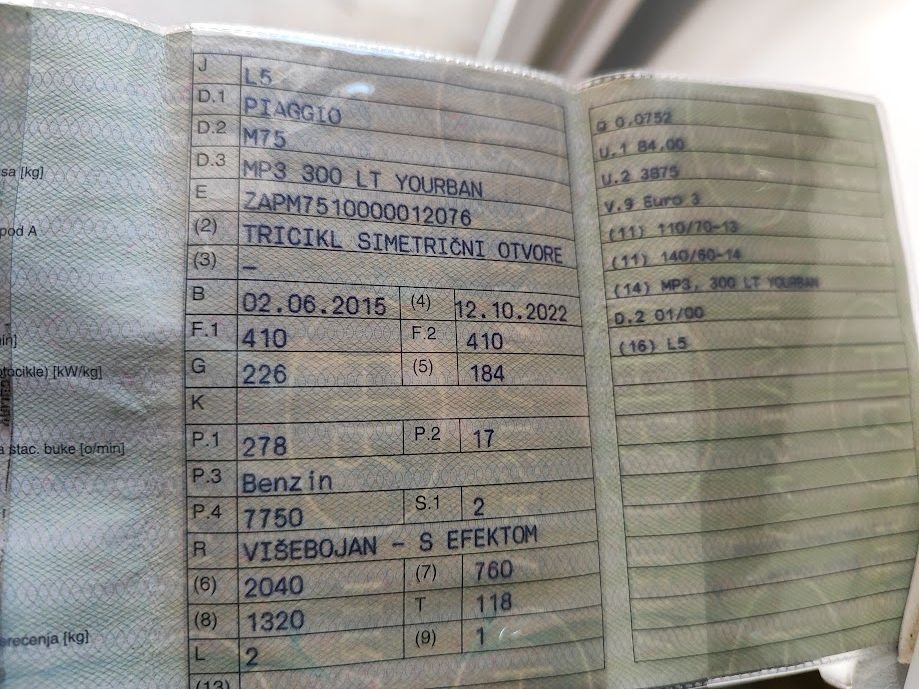 sa [kg]
pod A
in]
tocikle) [kW/kg]
a stac. buke [o/min]
erecenja [kg]
J L5
D.1 PIAGGIO
D.2 M75
D.3 MP3 300 LT YOURBAN
E ZAPM7510000012076
(2) TRICIKL SIMETRIČNI OTVORE
(3) –
B 02.06.2015 (4) 12.10.2022
F.1 410 F.2 410
G 226 (5) 184
K
P.1 278 P.2 17
P.3 Benzin
P.4 7750 S.1 2
R VIŠEBOJAN - S EFEKTOM
(6) 2040 (7) 760
(8) 1320 T 118
L 2 (9) 1
(13)
Q 0,0752
U.1 84,00
U.2 3875
V.9 Euro 3
(11) 110/70-13
(11) 140/60-14
(14) MP3, 300 LT YOURBAN
D.2 01/00
(16) L5